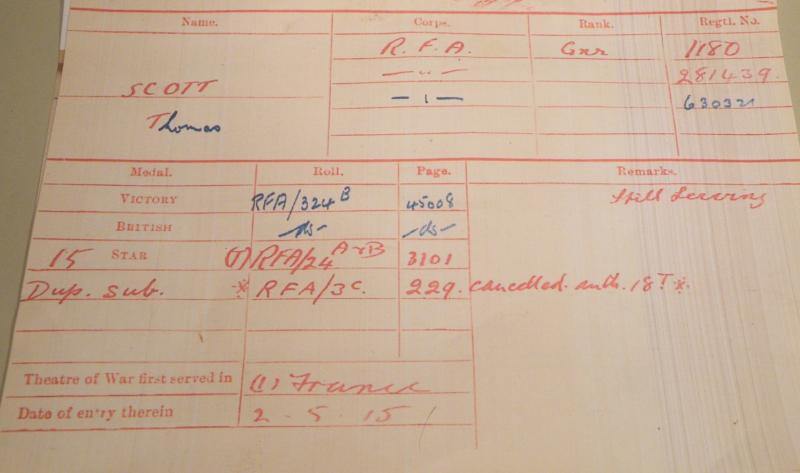 Name. Corps. Rank. Regtl. No.
R.F.A. Gnr 1180
— " — 281439.
SCOTT — " — 630321
Thomas
Medal. Roll. Page. Remarks.
VICTORY RFA/324 B 45008 Still Serving
BRITISH —do— —do—
15 STAR (T) RFA/24 A+B 3101
Dup. sub. * RFA/3C. 229. cancelled. auth. 18T *.
Theatre of War first served in (1) France
Date of entry therein 2 - 5 - 15